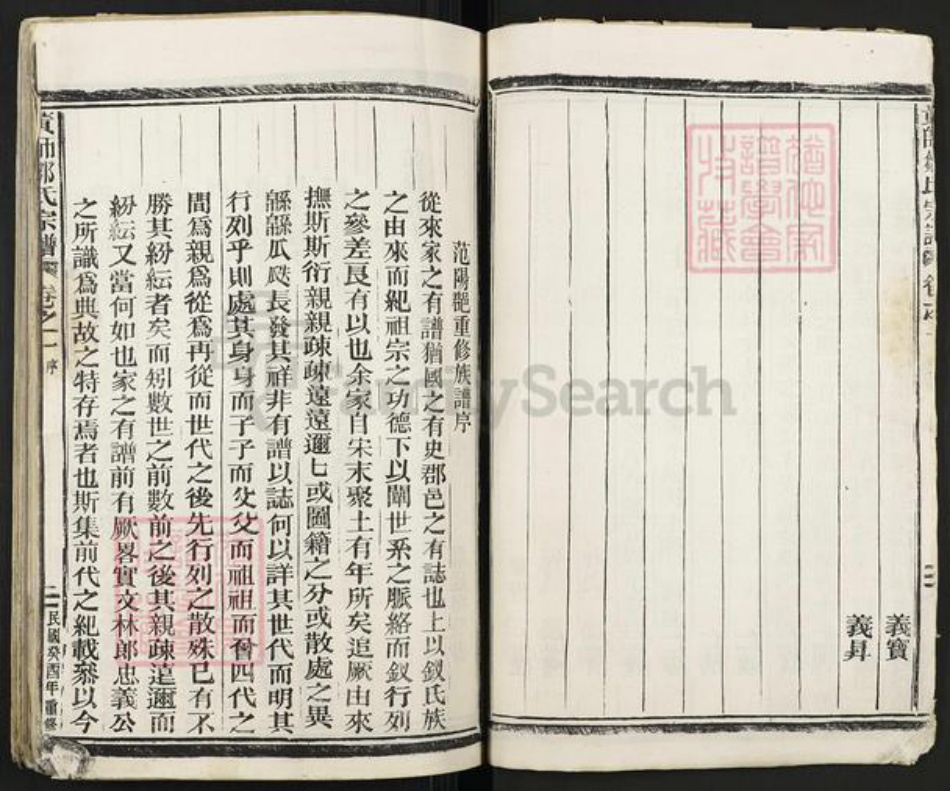 義寶
義昇
范陽郡重修族譜序
從來家之有譜猶國之有史郡邑之有誌也上以叙氏族
之由來而紀祖宗之功德下以闡世系之脈絡而叙行列
之參差良有以也余家自宋末聚土有年所矣追厥由來
撫斯斯衍親親疎疎遠遠邇匕或圖籍之分或散處之異
緜緜瓜瓞長發其祥非有譜以誌何以詳其世代而明其
行列乎則處其身身而子子而父父而祖祖而曾四代之
間爲親爲從爲再從而世代之後先行列之散殊已有不
勝其紛紜者矣而矧數世之前數前之後其親疎遠邇而
紛紜又當何如也家之有譜前有厥畧實文林郎忠義公
之所識爲典故之特存焉者也斯集前代之紀載叅以今
黃師鄒氏宗譜 卷之一 序
二 民國癸酉年重修
猶他家譜學會收藏
FamilySearch